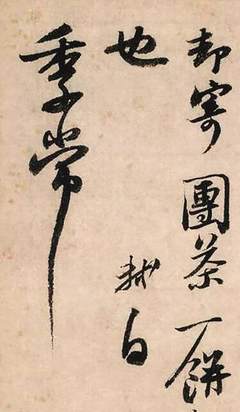 却寄團茶一餅
也 軾白
季常